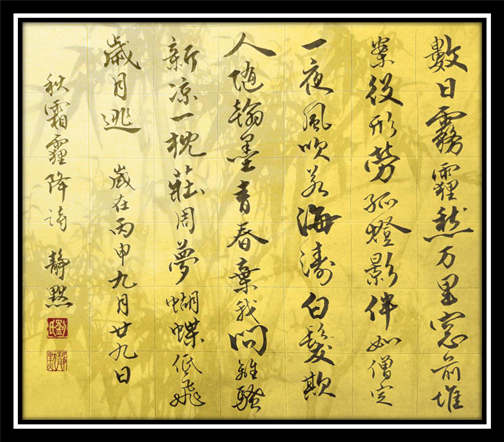 數日霧霾愁万里窓前堆
案役形勞孤燈影伴如僧定
一夜風吹若海濤白髮欺
人随翰墨青春棄我問離騷
新凉一枕莊周夢蝴蝶低飛
歲月逃 歲在丙申九月廿九日
秋霜霾降詩 静默